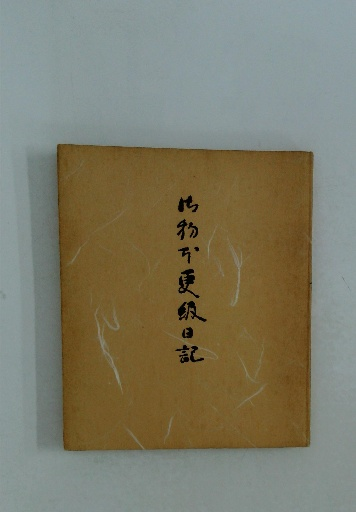 御物本更級日記